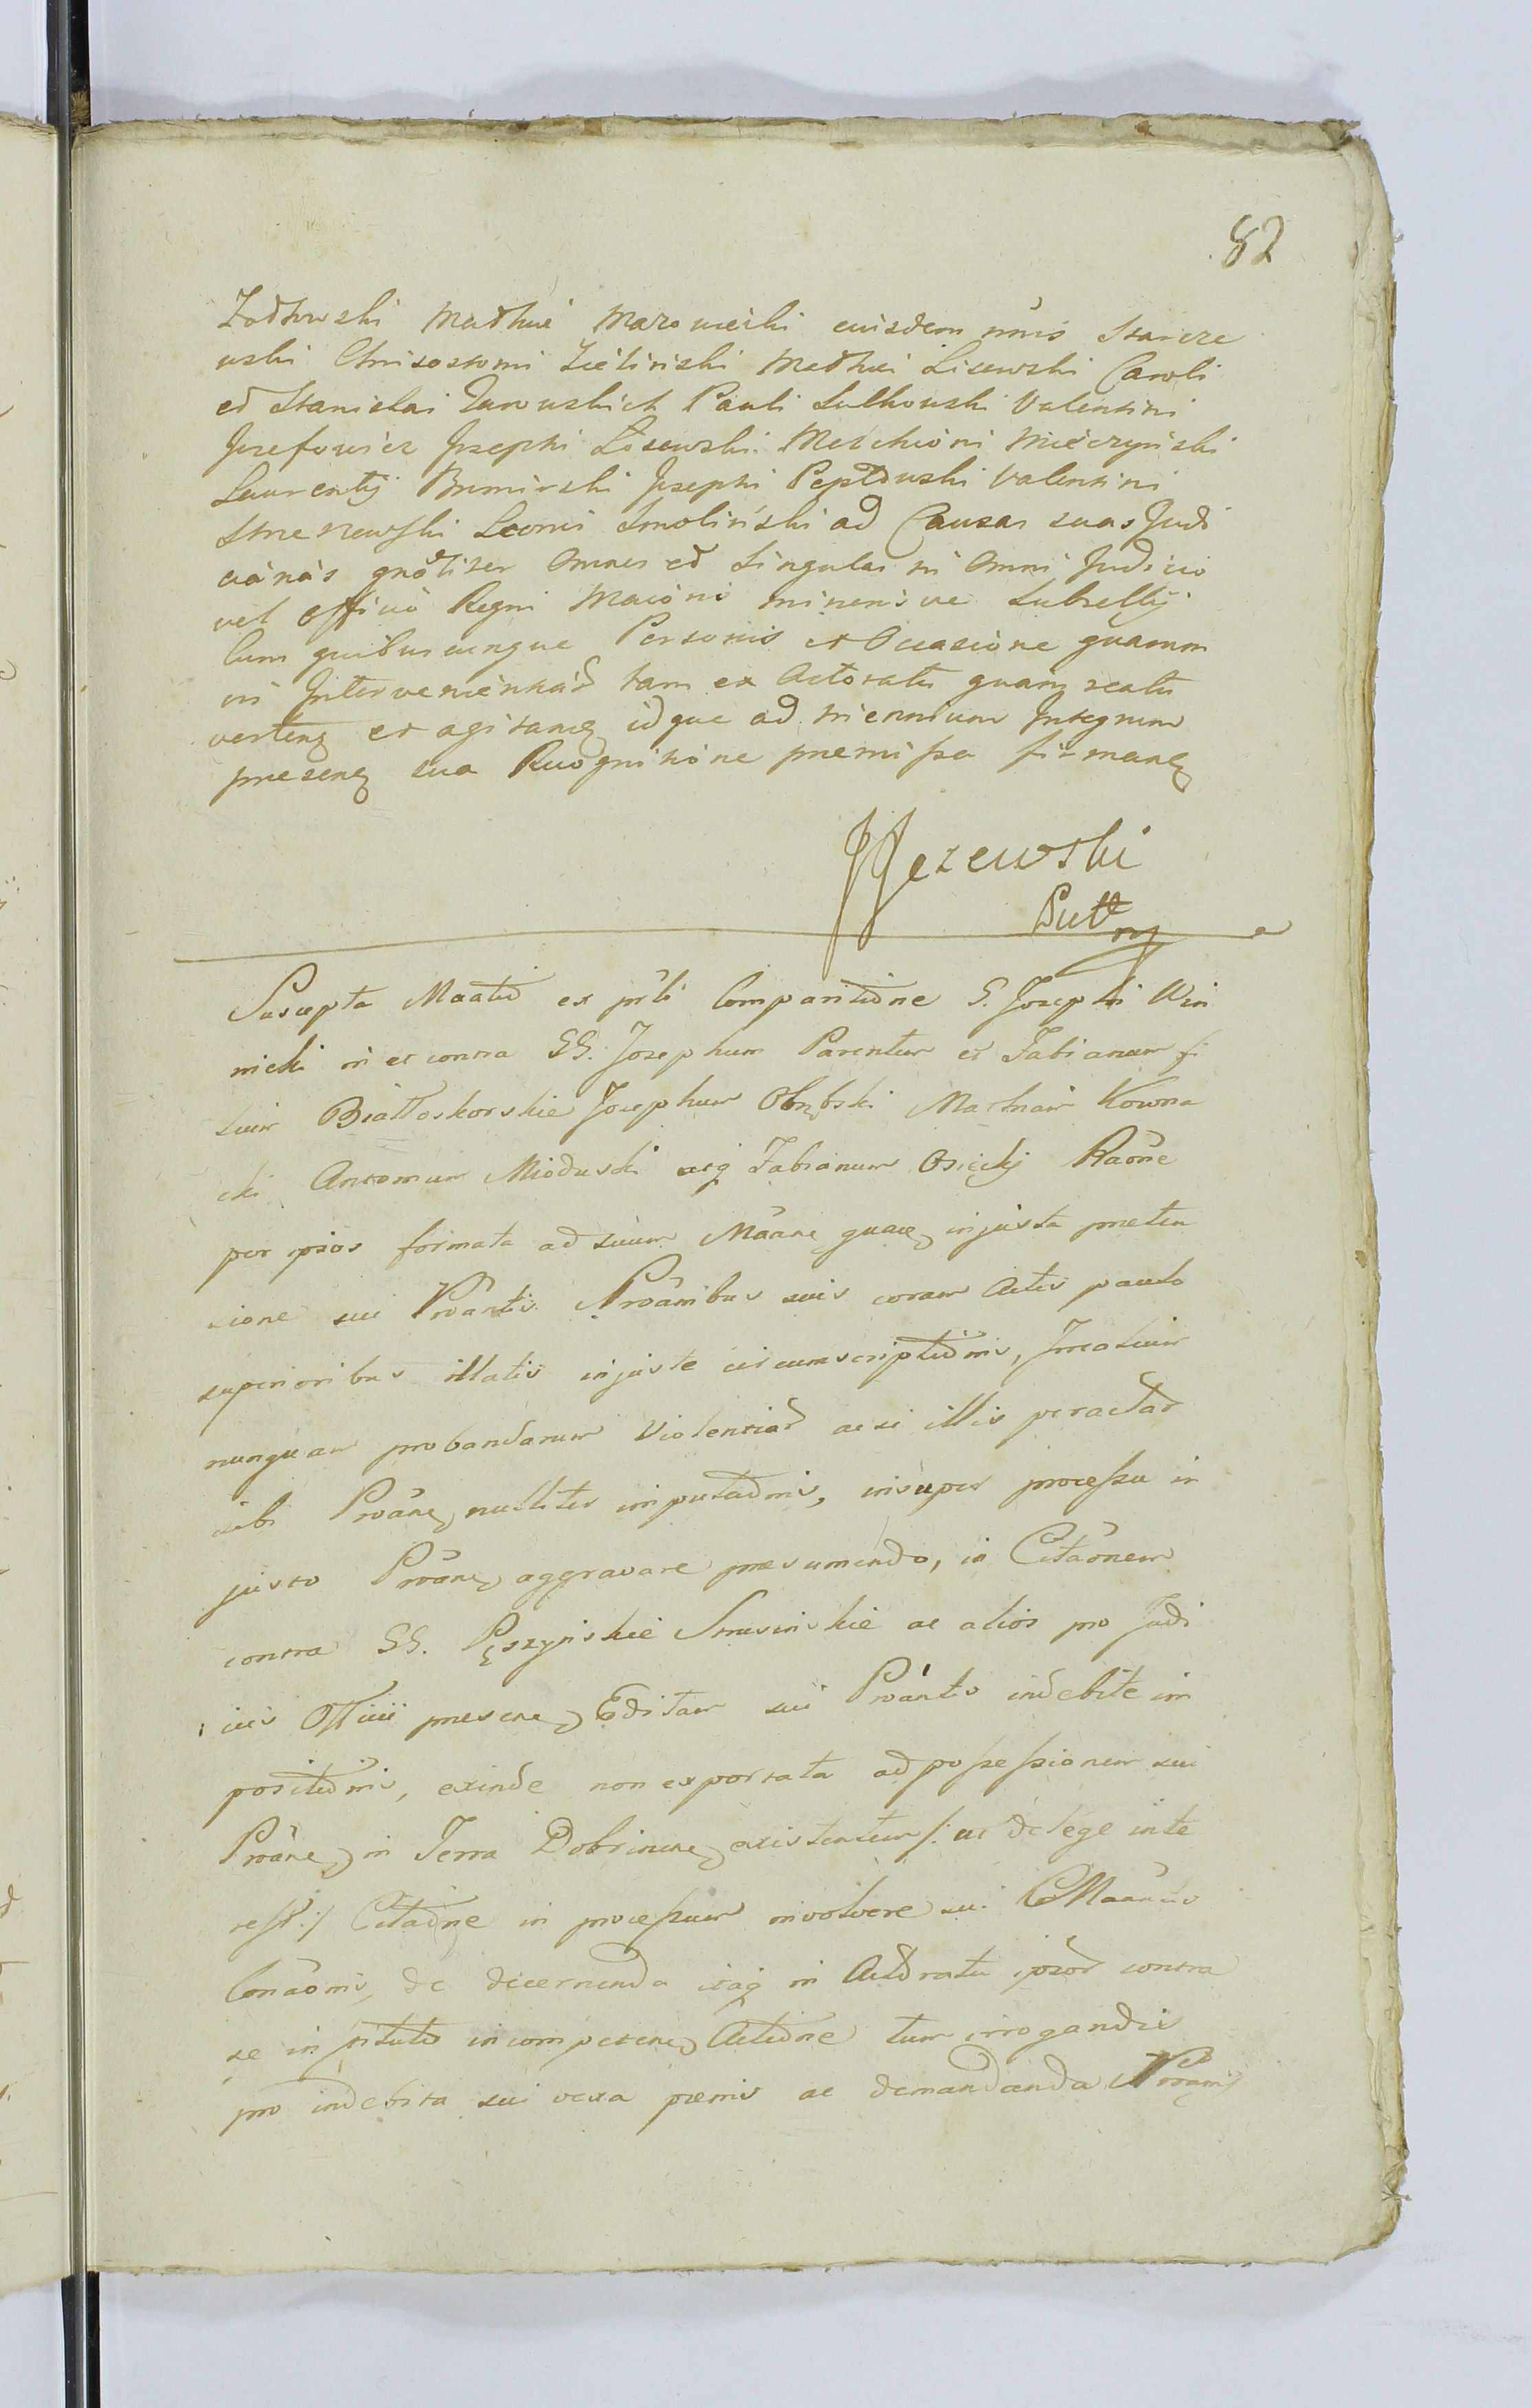 82
Zodkowski Mathiei Mazowiecki eiusdem nnis Starcze
wski Chrisostomi Zielinski Mathiei Lisewski Caroli
et Stanislai Zurowskich Pauli Sulkowski Valentini
Jozefowicz Josephi Losewski Melchiori Mięczyński
Laurentij Brmirski Josephi Peptowski Valentini
Strzeszewski Leonis Smoliński ad Causas suas Judi
ciarias gnaliter Omnes et Singulas in Omni Judicio
vel officio Regni Maioris minorisve Subsellij
Cum quibuscunque Personis et Occasione quarum
vi Intervenientiar tam ex Actoratu quam reatu
verten et agitan idque ad triennium Integrum
presen sua Recognitione premissa firman
JJezewski
Suscepta Maatio ex prli Comparitione G. Josephi Win
nicki in et contra GG. Josephum Parentem et Fabianum fi
lium Białoskorskie Josephum Obrębski Mathiam Kowna
cki Antonium Mioduski atq Fabianum Osiecki Raone
per ipsos formata ad suum Maane quae injusta preten
sione sui Proantis Proanibus suis coram Actis paulo
superioribus illatis injuste circumscriptionis,
nunquam probandarum Violentiar acsi illis peractar
sibi Proan nulliter imputationis, insuper processu in
justo Proan aggravare presumendo, in Citaonem
contra GG. Pęszyńskie Smusinskie ac alios pro Judi
ciis Officii presen Editam sui Proantis indebite im
positionis, exinde non exportata ad possessionem sui
Proan in Terra Dobrinen existentem /: ut de lege inte
rest :/ Citatione in processum involvere sui CMaantis
Conaonis, de decernenda itaq in Actoratu ipsor contra
se instituto incompeten Actione tum irrogandis
pro indebita sui vexa poenis ac demandanda